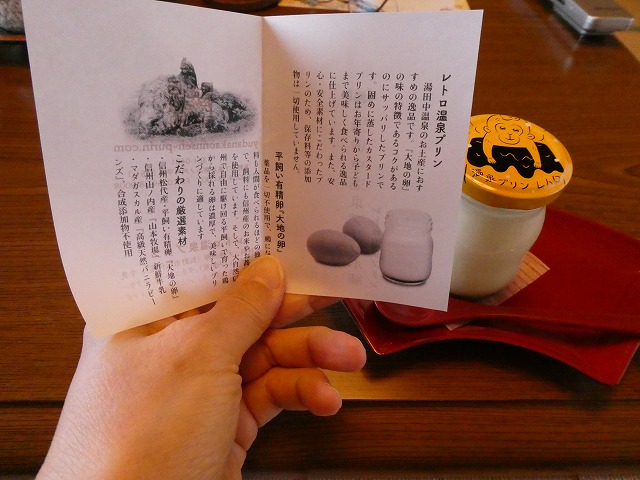 レトロ温泉プリン
湯田中温泉のお土産におす
すめの逸品です。『大地の卵』
の味の特徴であるコクがある
のにサッパリしたプリンで
す。固めに蒸したカスタード
プリンはお年寄りから子ども
まで美味しく食べられる逸品
に仕上げています。また、安
心・安全素材にこだわったプ
リンのため、保存料等の添加
物は一切使用していません。
平飼い有精卵『大地の卵』
薬品を一切不使用で、鶏に
料も人間が食べられるほどの
で、飼料にも信州産のお米やお
を使用しています。そして、大自然
州で自由に駆け回る平飼いで育った鶏
から採れる卵は濃厚で、美味しいプリ
ンづくりに適しています。
こだわりの厳選素材
・信州松代産・平飼い有精卵『大地の卵』
・信州山ノ内産「山本牧場」新鮮牛乳
・マダガスカル産「高級天然バニラビー
ンズ」 合成添加物不使用
温泉プリン LABO